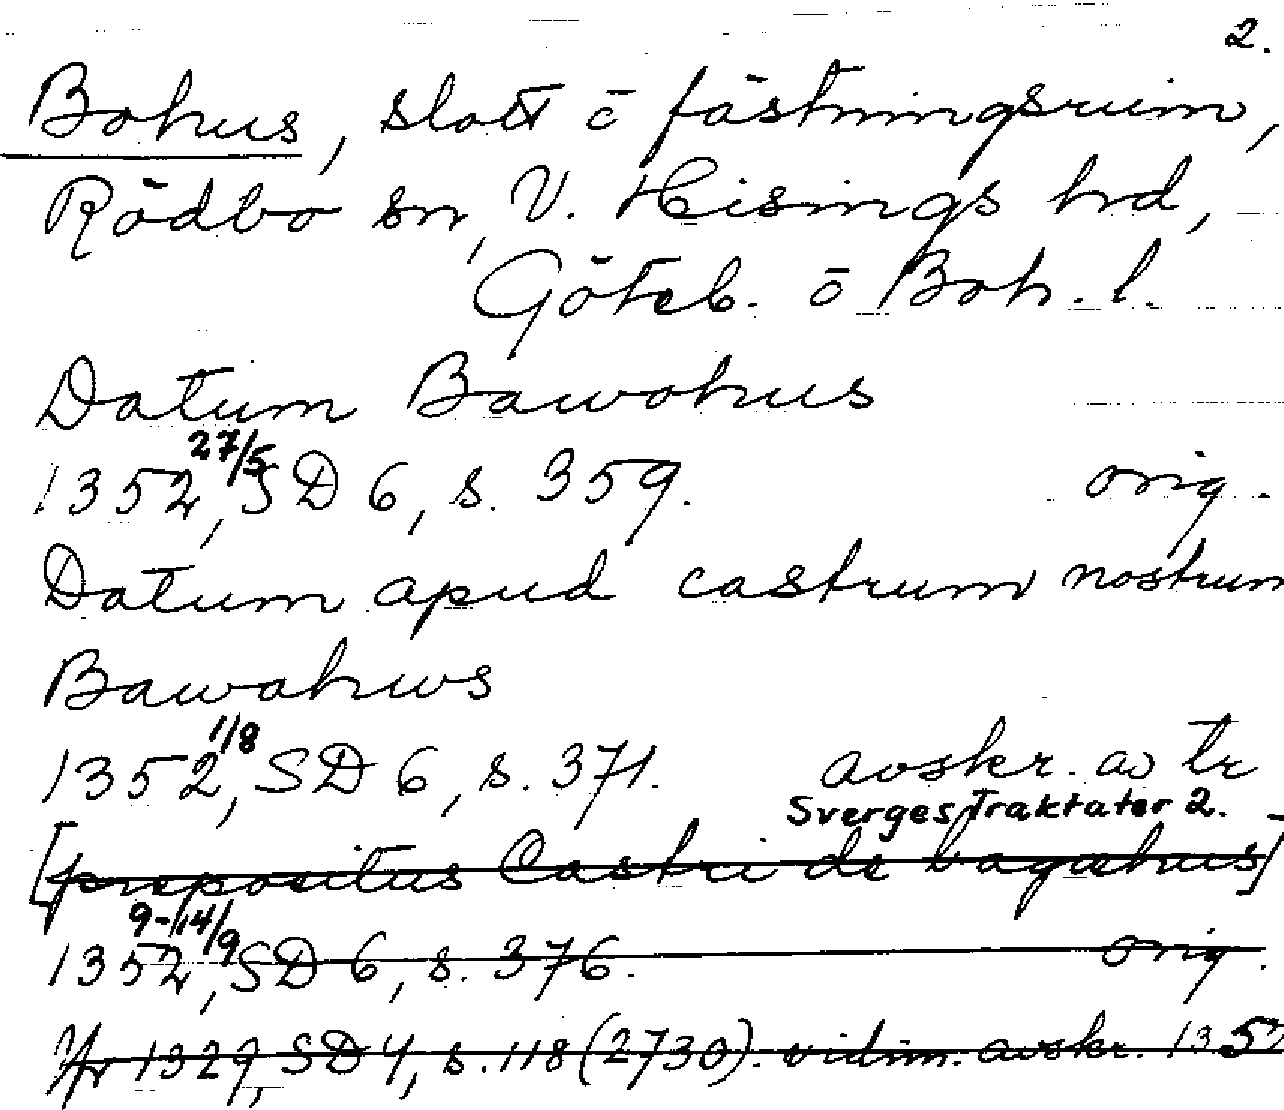 2.
Bohus, slott ō fästningsruin,
Rödbo sn, V. Hisings hrd,
Göteb. ō Boh. l.
Datum Bawohus
1352 27/5, SD 6, s. 359. orig.
Datum apud castrum nostrum
Bawahws
1352 1/8, SD 6, s. 371. avskr. av tr
Sverges Traktater 2.
[prepositus Castri de bagahus]
1352 9-14/9, SD 6, s. 376. orig.
Jfr 1329, SD 4, s. 118 (2730). vidim. avskr. 135